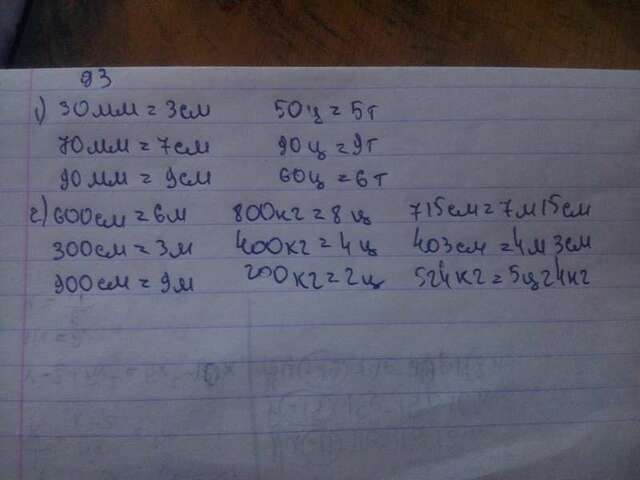 93
1) 30мм = 3см 50ц = 5т
70мм = 7см 90ц = 9т
90мм = 9см 60ц = 6т
2) 600см = 6м 800кг = 8ц 715см = 7м 15см
300см = 3м 400кг = 4ц 403см = 4м 3см
900см = 9м 200кг = 2ц 524кг = 5ц 24кг